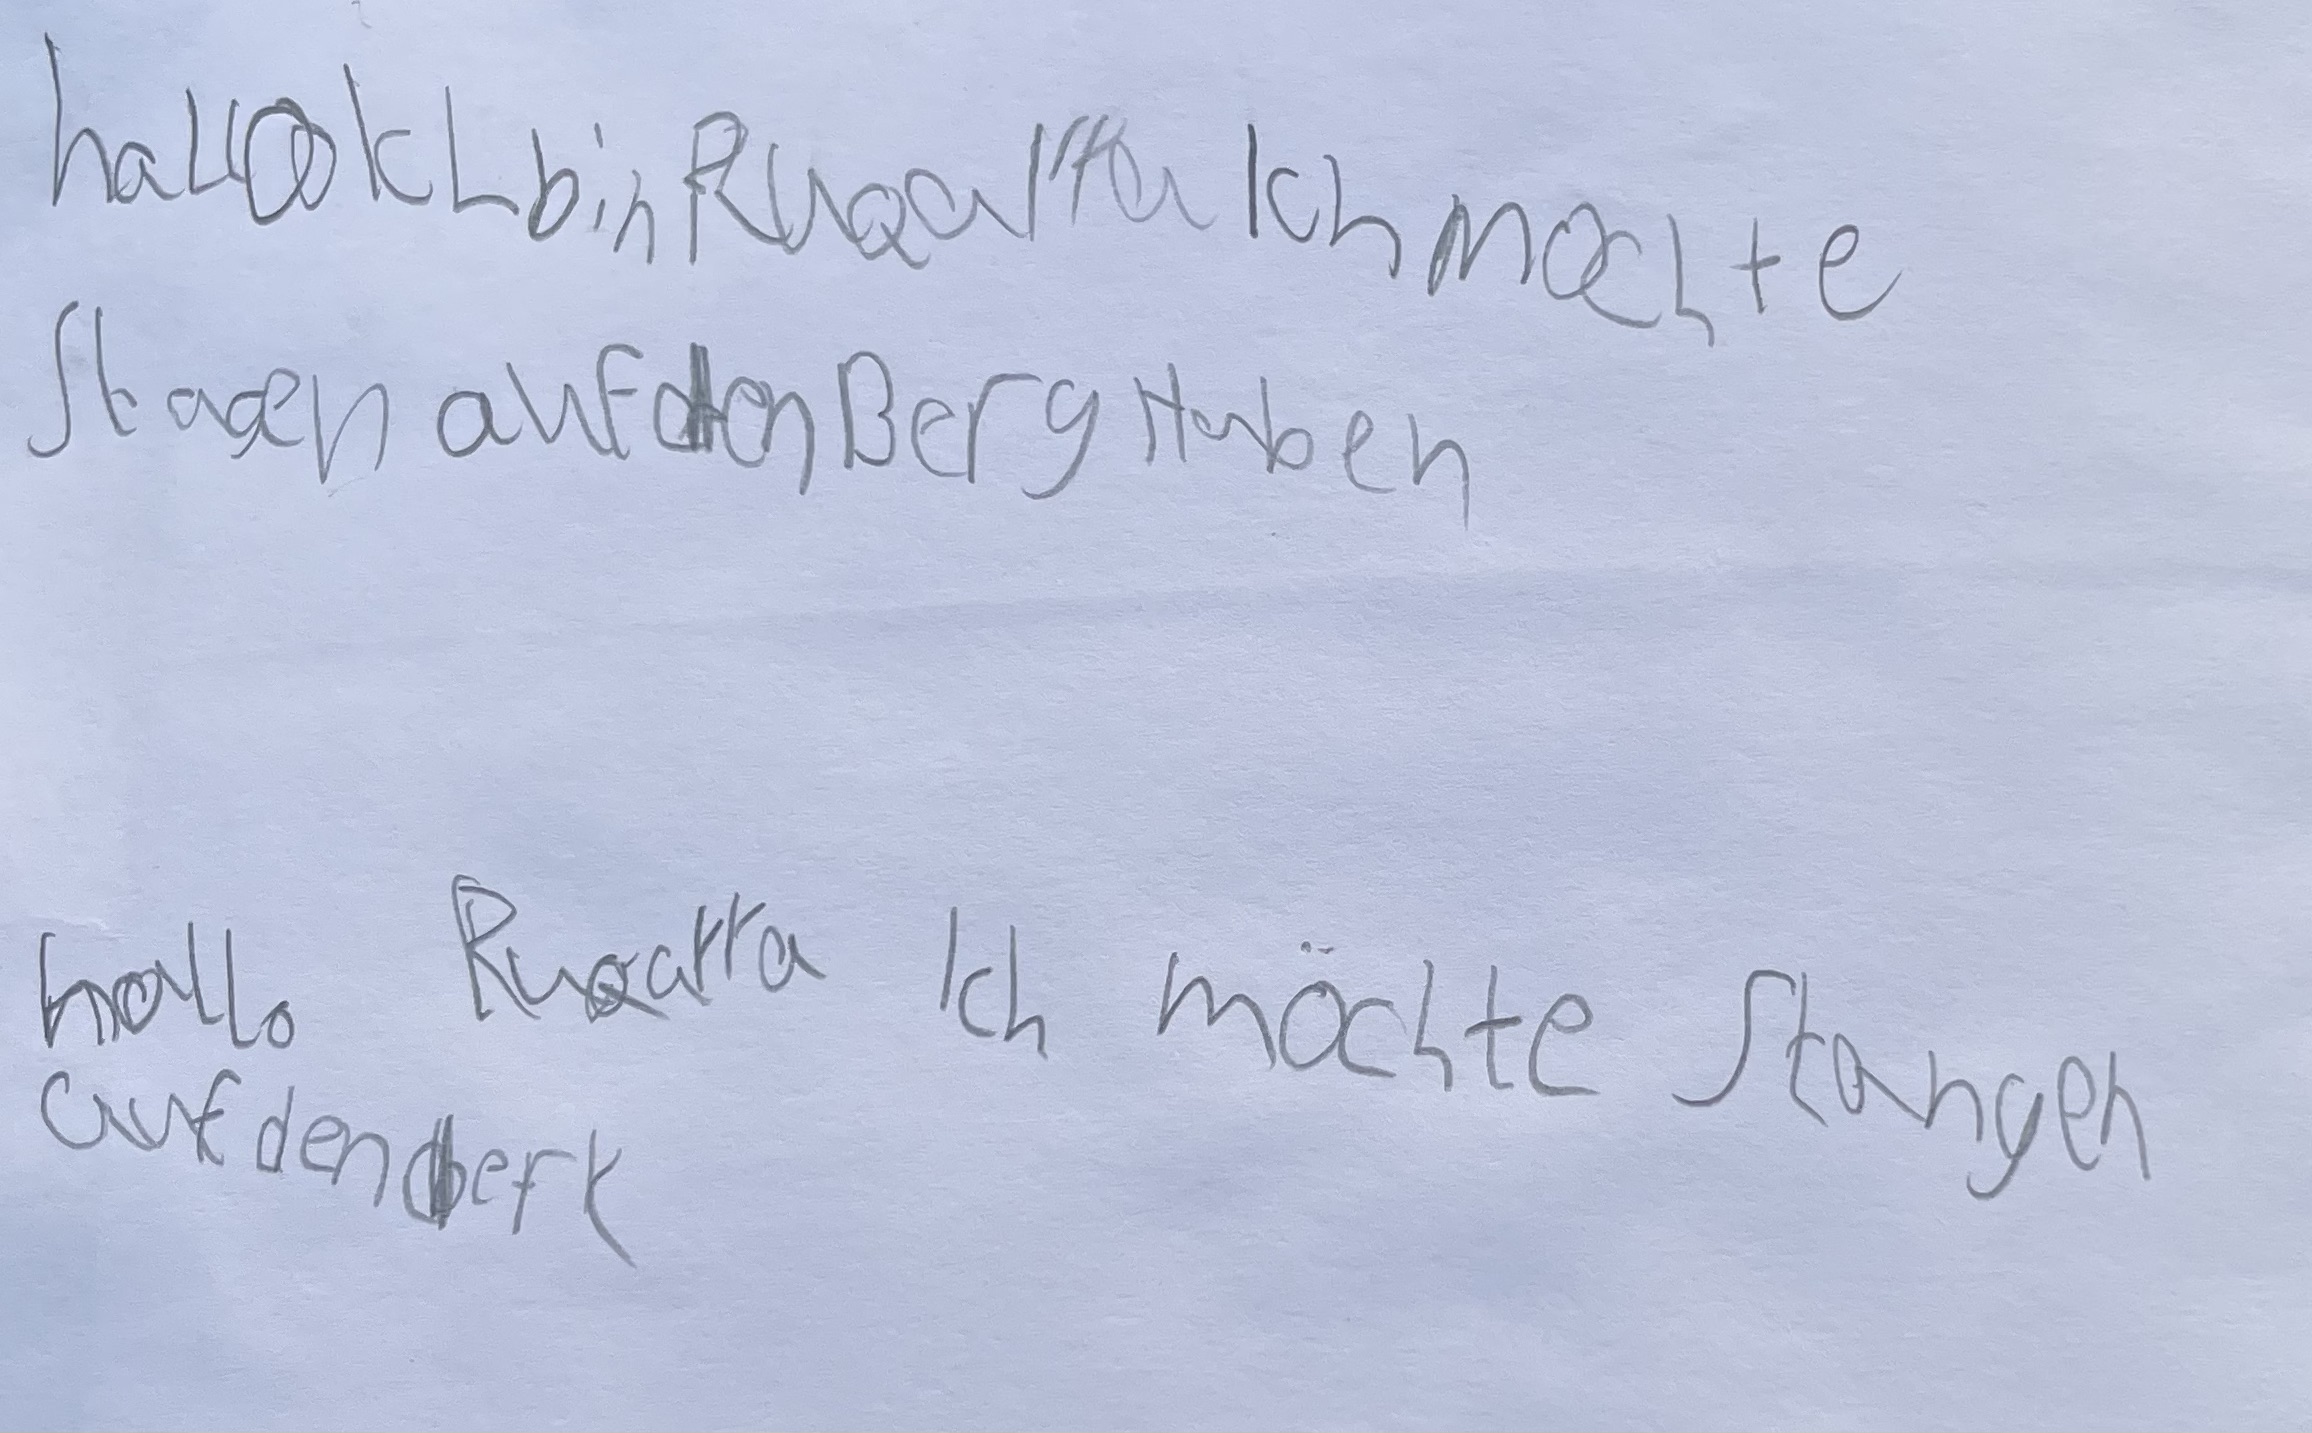 hallo ich bin Ruqayya Ich mochte
Stagen auf den Berg Haben
hallo Ruqayya Ich möchte Stangen
auf den berk